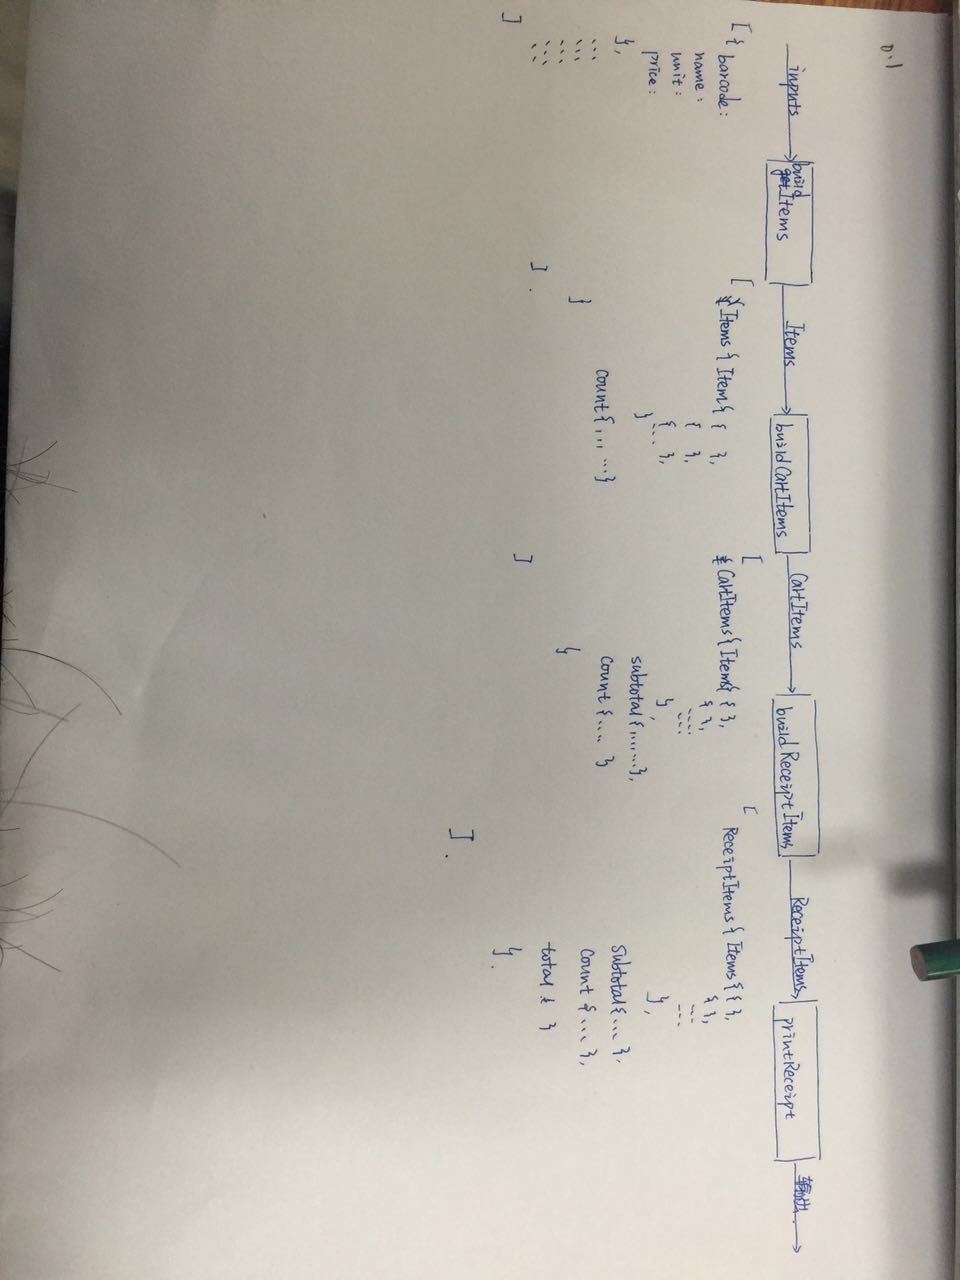 0.1
inputs
build
getItems
Items
buildCartItems
CartItems
buildReceiptItems
ReceiptItems
printReceipt
输出
[ { barcode:
name:
unit:
price:
},
...
...
...
...
]
[
Items { Item { { },
{ },
{ ... },
}
count { , ... ... }
}
] .
[
CartItems { Items { { },
{ },
....
},
subtotal { ...... },
count { .... }
}
]
[
ReceiptItems { Items { { },
{ },
...
},
Subtotal { ... },
count { ... },
total { }
} .
] .